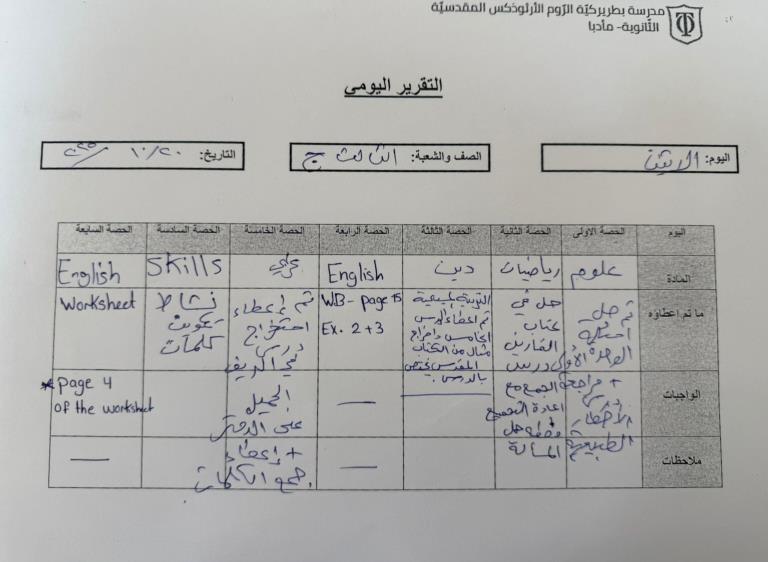 مدرسة بطريركيّة الرّوم الأرثوذكس المقدسيّة
الثّانوية- مأدبا
التقرير اليومي
اليوم: الاثنين
الصف والشعبة: الثالث ج
التاريخ: ٢٠ / ١٠ / ٢٠٢٥
اليوم الحصة الاولى الحصة الثانية الحصة الثالثة الحصة الرابعة الحصة الخامسة الحصة السادسة الحصة السابعة
المادة علوم رياضيات دين English عربي Skills English
ما تم اعطاؤه
تم حل
أسئلة
الوحدة الأولى
+ مراجعة
درس
الأخطار
الطبيعية
حل في
كتاب
التمارين
درس
الجمع مع
اعادة التجميع
وخطة حل
المسألة
التربية المسيحية
تم اعطاء الدرس
الخامس وإخراج
مثال من الكتاب
المقدس يختص
بالدرس.
WB - page 15
Ex. 2 + 3
تم إعطاء
استخراج
درس
في الريف
الجميل
على الدفتر
+ إعطاء
جمع الكلمات
نشاط
تكوين
كلمات
Worksheet
الواجبات
* page 4
of the worksheet
ملاحظات